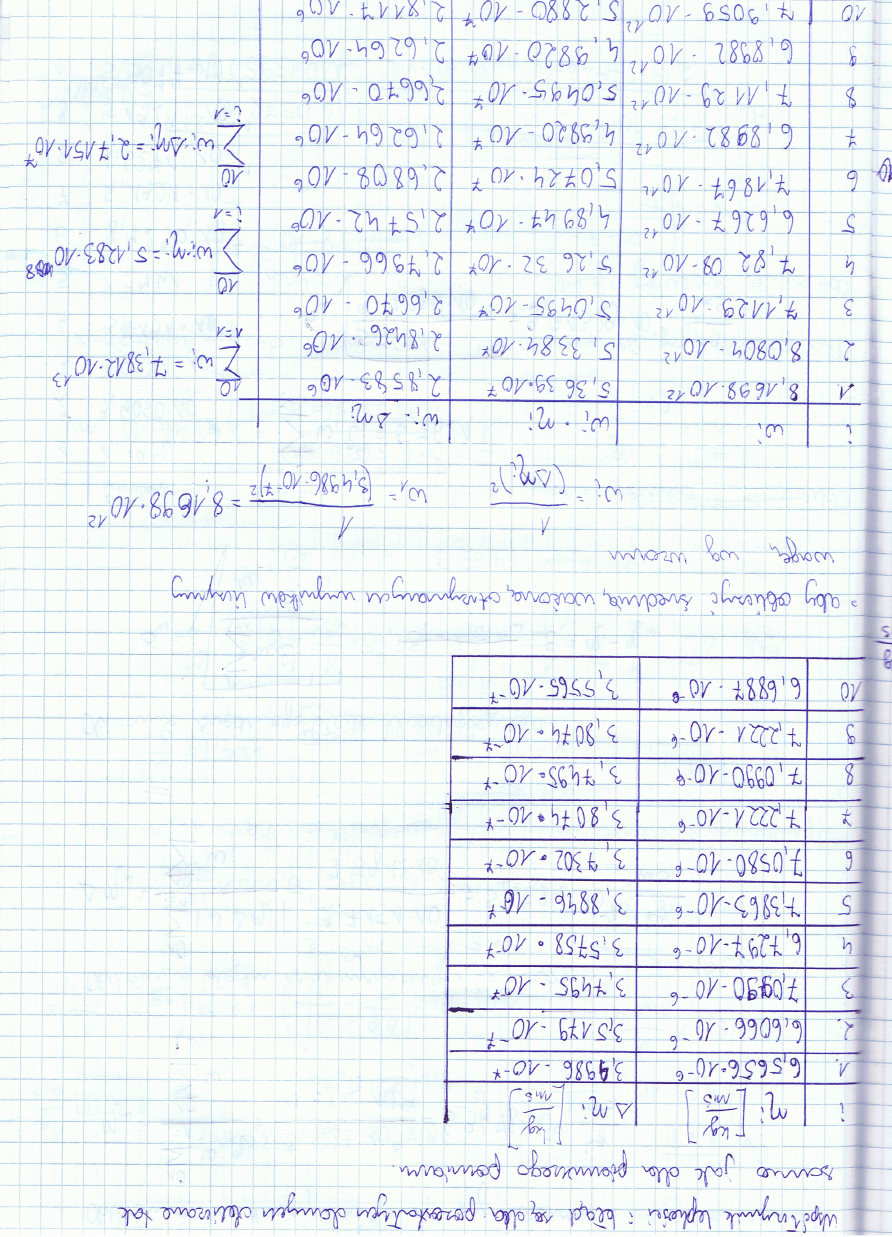 współczynnik lepkości i błąd są dla pozostałych danych obliczane tak
samo jak dla pierwszego pomiaru.
i | ηi [kg/ms] | Δηi [kg/ms]
1. | 6,5656·10⁻⁶ | 3,4986 · 10⁻⁷
2. | 6,6066 · 10⁻⁶ | 3,5179 · 10⁻⁷
3 | 7,0990 · 10⁻⁶ | 3,7495 · 10⁻⁷
4 | 6,7297 · 10⁻⁶ | 3,5758 · 10⁻⁷
5 | 7,3863 · 10⁻⁶ | 3,8896 · 10⁻⁷
6 | 7,0580 · 10⁻⁶ | 3,7302 · 10⁻⁷
7 | 7,2221 · 10⁻⁶ | 3,8074 · 10⁻⁷
8 | 7,0990 · 10⁻⁶ | 3,7495 · 10⁻⁷
9 | 7,2221 · 10⁻⁶ | 3,8074 · 10⁻⁷
10 | 6,6887 · 10⁻⁶ | 3,5565 · 10⁻⁷
• aby obliczyć średnią ważoną otrzymanych wyników liczymy
wagę wg wzoru
wi = 1/(Δηi)² w₁ = 1/(3,4986·10⁻⁷)² = 8,1698·10¹²
i | wi | wi · ηi | wi · Δηi
1 | 8,1698·10¹² | 5,3639·10⁷ | 2,8583·10⁶
2 | 8,0804 · 10¹² | 5,3384·10⁷ | 2,8426 · 10⁶
3 | 7,1129 · 10¹² | 5,0495 · 10⁷ | 2,6670 · 10⁶
4 | 7,8208 · 10¹² | 5,2632 · 10⁷ | 2,7966 · 10⁶
5 | 6,6267 · 10¹² | 4,8947 · 10⁷ | 2,5742 · 10⁶
6 | 7,1867 · 10¹² | 5,0724 · 10⁷ | 2,6808 · 10⁶
7 | 6,8982 · 10¹² | 4,9820 · 10⁷ | 2,6264 · 10⁶
8 | 7,1129 · 10¹² | 5,0495 · 10⁷ | 2,6670 · 10⁶
9 | 6,8982 · 10¹² | 4,9820 · 10⁷ | 2,6264 · 10⁶
10 | 7,9059 · 10¹² | 5,2880 · 10⁷ | 2,8117 · 10⁶
10 Σ i=1 wi = 7,3812·10¹³
10 Σ i=1 wi·ηi = 5,1283·10⁸
10 Σ i=1 wi·Δηi = 2,7151·10⁷